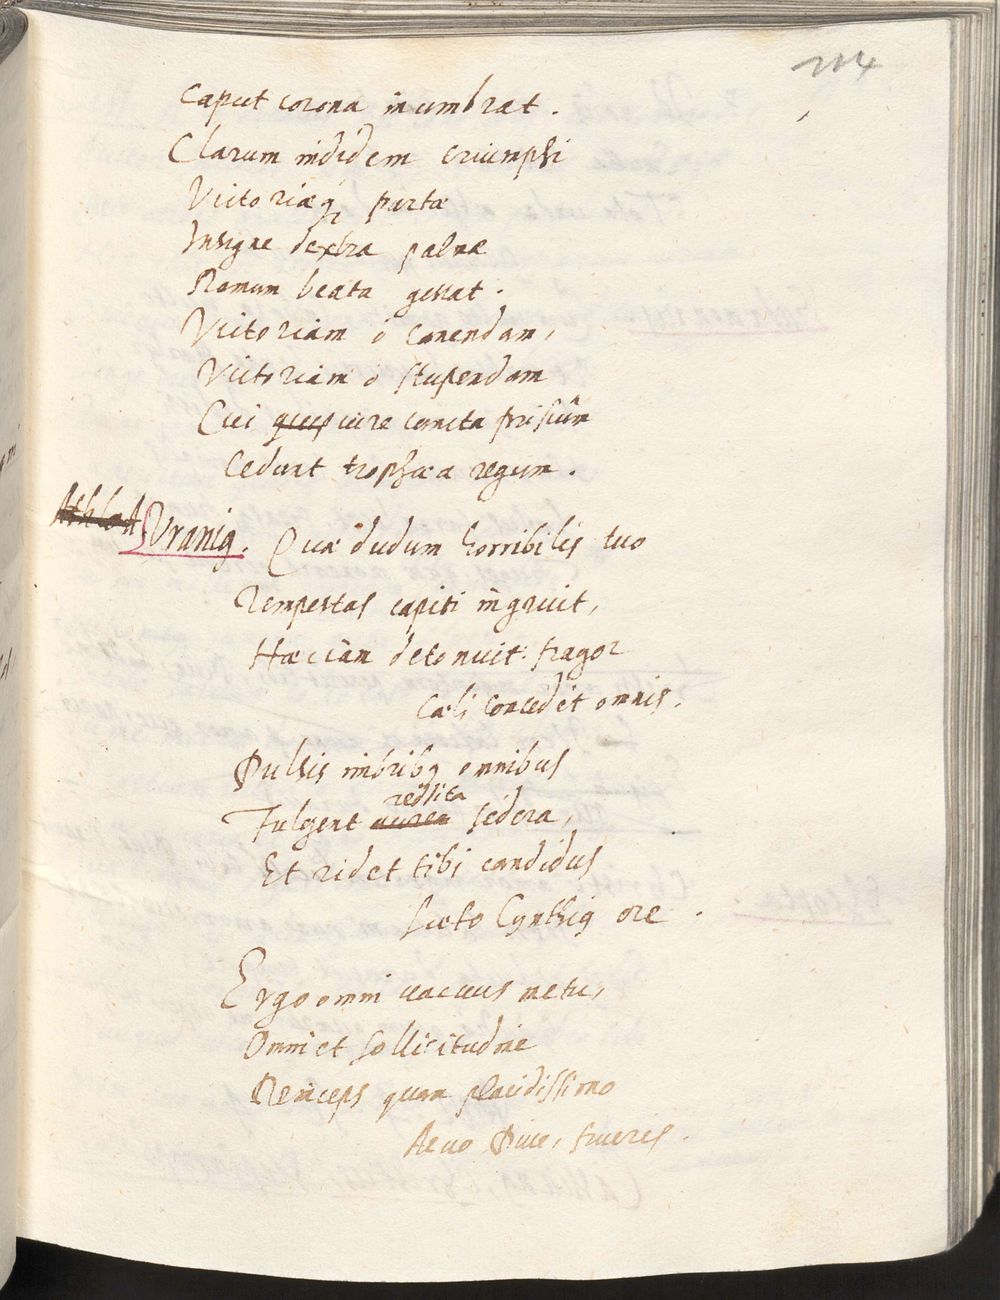 114
Caput corona inumbrat.
Clarum indidem triumphi
Victoriæq; partæ
Insigne dextra palmæ
Ramum beata gestat.
Victoriam ô canendam,
Victoriam ô stupendam
Cui iure cuncta priscûm
Cedunt trophæa regum.
Athleta Vranius. Quæ dudum horribilis tuo
Tempestas capiti ingruit,
Hæc iam detonuit: fragor
Cæli concedit omnis.
Pulsis imbribus omnibus
reddita
Fulgent aurea sidera,
Et ridet tibi candidus
Læto Cynthius ore.
Ergo omni vacuus metu,
Omni et sollicitudine
Princeps quam placidissimo
Aeuo Diue, frueris.